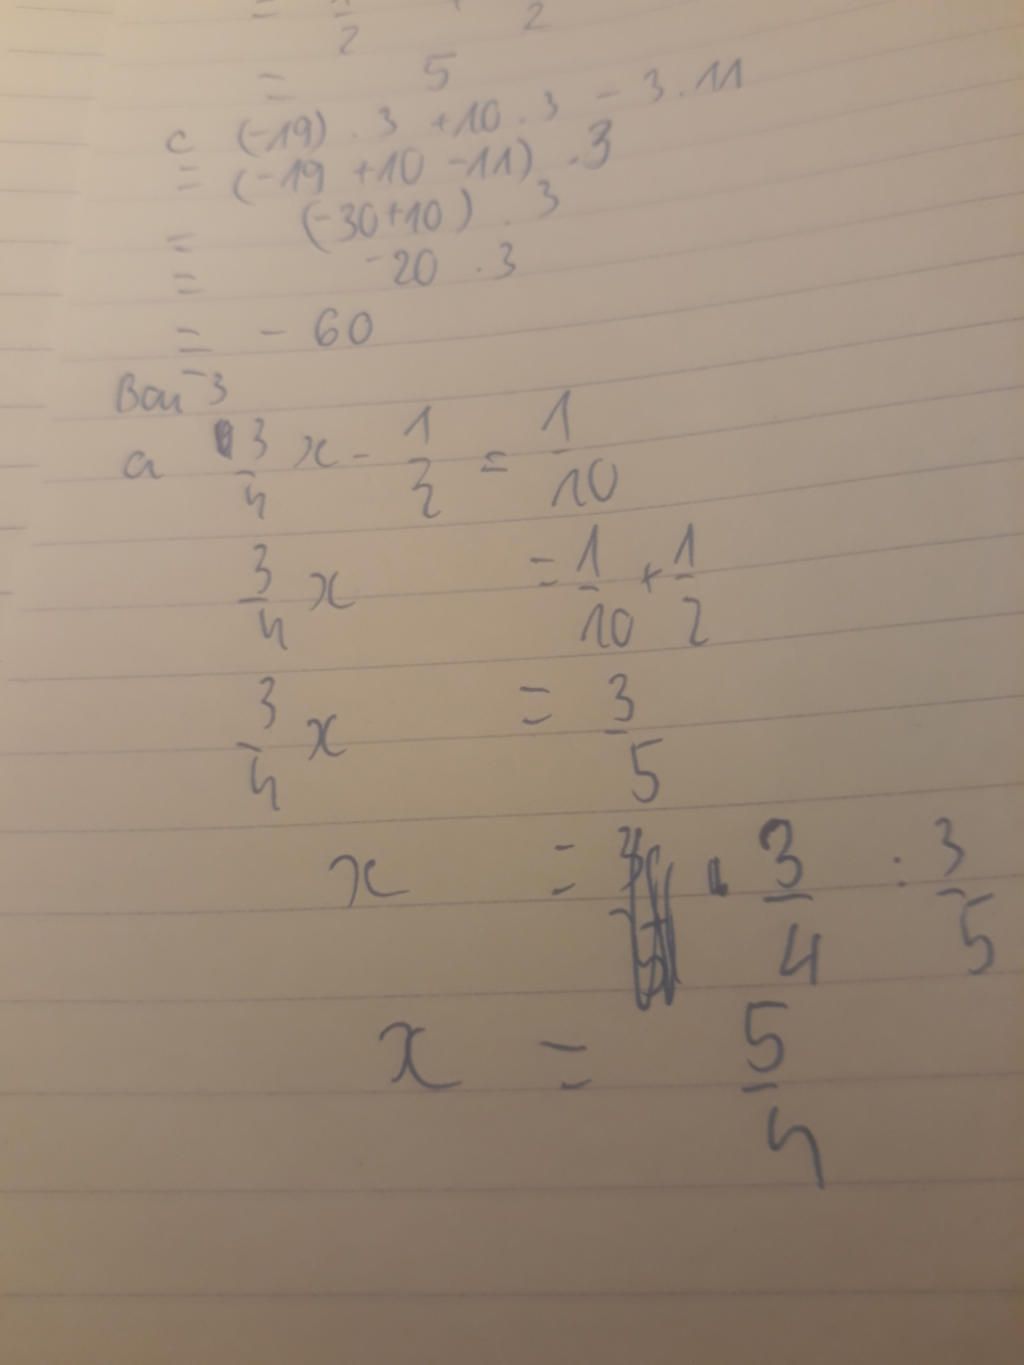 = 1/2 + 2
= 5
c (-19) . 3 +10 . 3 - 3 . 11
= (-19 +10 -11) . 3
= (-30+10) . 3
= -20 . 3
= - 60
Bài 3
a 3/4 x - 1/2 = 1/10
3/4 x = 1/10 + 1/2
3/4 x = 3/5
x = 3/4 : 3/5
x = 5/4